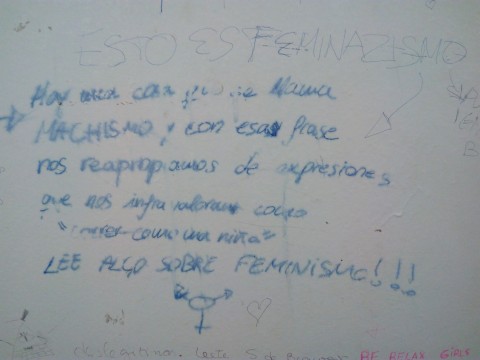 ESTO ES FEMINAZISMO
Hay una cosa que se llama
MACHISMO y con esas frase
nos reapropiamos de expresiones
que nos infravaloran como
"correr como una niña"
LEE ALGO SOBRE FEMINISMO!!!
RELAX GIRLS